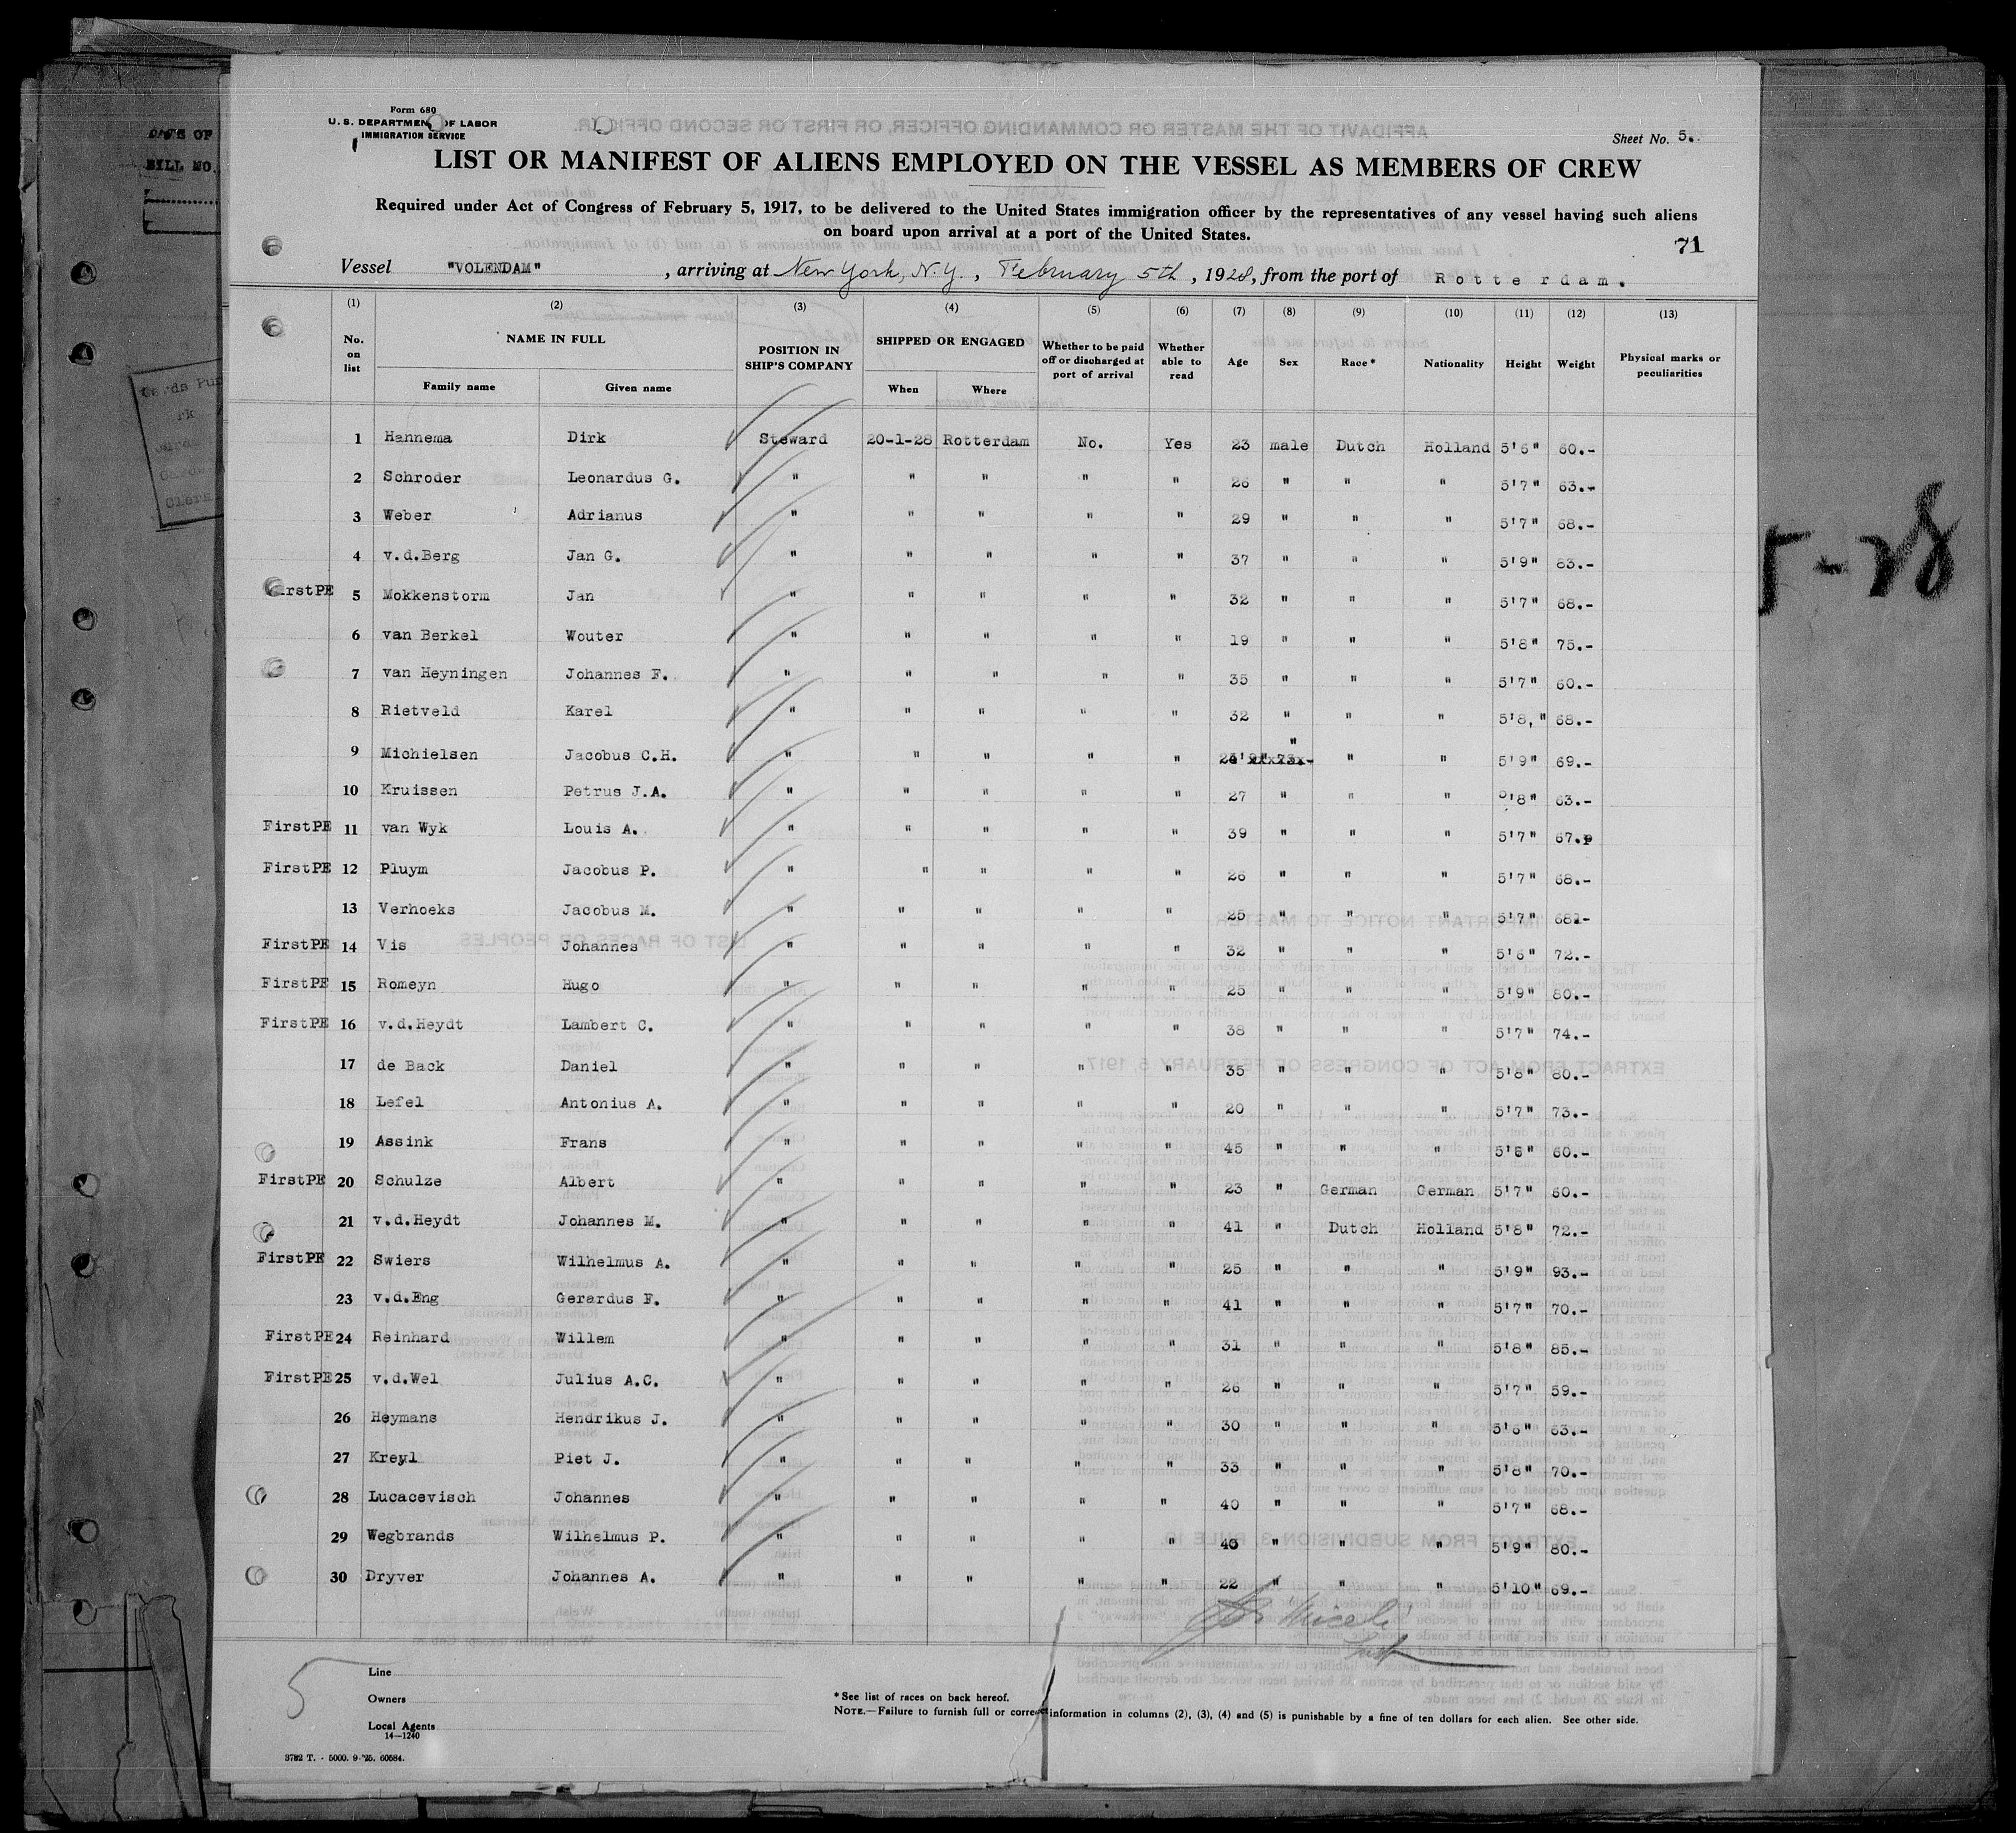 Form 680
U. S. DEPARTMENT OF LABOR
IMMIGRATION SERVICE
Sheet No. 5.
LIST OR MANIFEST OF ALIENS EMPLOYED ON THE VESSEL AS MEMBERS OF CREW
Required under Act of Congress of February 5, 1917, to be delivered to the United States immigration officer by the representatives of any vessel having such aliens
on board upon arrival at a port of the United States.
71
Vessel "VOLENDAM" , arriving at New York, N.Y. , February 5th , 1928, from the port of Rotterdam.
(1) (2) (3) (4) (5) (6) (7) (8) (9) (10) (11) (12) (13)
No. on list NAME IN FULL Family name Given name POSITION IN SHIP'S COMPANY SHIPPED OR ENGAGED When Where Whether to be paid off or discharged at port of arrival Whether able to read Age Sex Race* Nationality Height Weight Physical marks or peculiarities
1 Hannema Dirk Steward 20-1-28 Rotterdam No. Yes 23 male Dutch Holland 5'6" 60.-
2 Schroder Leonardus G. " " " " " 26 " " " 5'7" 63.-
3 Weber Adrianus " " " " " 29 " " " 5'7" 68.-
4 v.d.Berg Jan G. " " " " " 37 " " " 5'9" 83.-
FirstPE 5 Mokkenstorm Jan " " " " " 32 " " " 5'7" 68.-
6 van Berkel Wouter " " " " " 19 " " " 5'8" 75.-
7 van Heyningen Johannes F. " " " " " 35 " " " 5'7" 60.-
8 Rietveld Karel " " " " " 32 " " " 5'8," 68.-
9 Michielsen Jacobus C.H. " " " " " " " " 5'9" 69.-
10 Kruissen Petrus J.A. " " " " " 27 " " " '8" 63.-
FirstPE 11 van Wyk Louis A. " " " " " 39 " " " 5'7" 67.p
FirstPE 12 Pluym Jacobus P. " " " " " 26 " " " 5'7" 68.-
13 Verhoeks Jacobus M. " " " " " 25 " " " 5'7" 68.-
FirstPE 14 Vis Johannes " " " " " 32 " " " 5'6" 72.-
FirstPE 15 Romeyn Hugo " " " " " 25 " " " 5'9" 80.-
FirstPE 16 v.d.Heydt Lambert C. " " " " " 38 " " " 5'7" 74.-
17 de Back Daniel " " " " " 35 " " " 5'8" 80.-
18 Lefel Antonius A. " " " " " 20 " " " 5'7" 73.-
19 Assink Frans " " " " " 45 " " " 5'6" 60.-
FirstPE 20 Schulze Albert " " " " " 23 " German German 5'7" 60.-
21 v.d.Heydt Johannes M. " " " " " 41 " Dutch Holland 5'8" 72.-
FirstPE 22 Swiers Wilhelmus A. " " " " " 25 " " " 5'9" 93.-
23 v.d.Eng Gerardus F. " " " " " 41 " " " 5'7" 70.-
FirstPE 24 Reinhard Willem " " " " " 31 " " " 5'8" 85.-
FirstPE 25 v.d.Wel Julius A.C. " " " " " 26 " " " 5'7" 59.-
26 Heymans Hendrikus J. " " " " " 30 " " " 5'6" 63.-
27 Kreyl Piet J. " " " " " 33 " " " 5'8" 70.-
28 Lucacevisch Johannes " " " " " 40 " " " 5'7" 68.-
29 Wegbrands Wilhelmus P. " " " " " 40 " " " 5'9" 80.-
30 Dryver Johannes A. " " " " " 22 " " " 5'10" 69.-
5
Line
Owners
Local Agents
14—1240
* See list of races on back hereof.
NOTE.—Failure to furnish full or correct information in columns (2), (3), (4) and (5) is punishable by a fine of ten dollars for each alien. See other side.
3782 T. - 5000. 9-'25. 60584.
5-28
BILL NO.